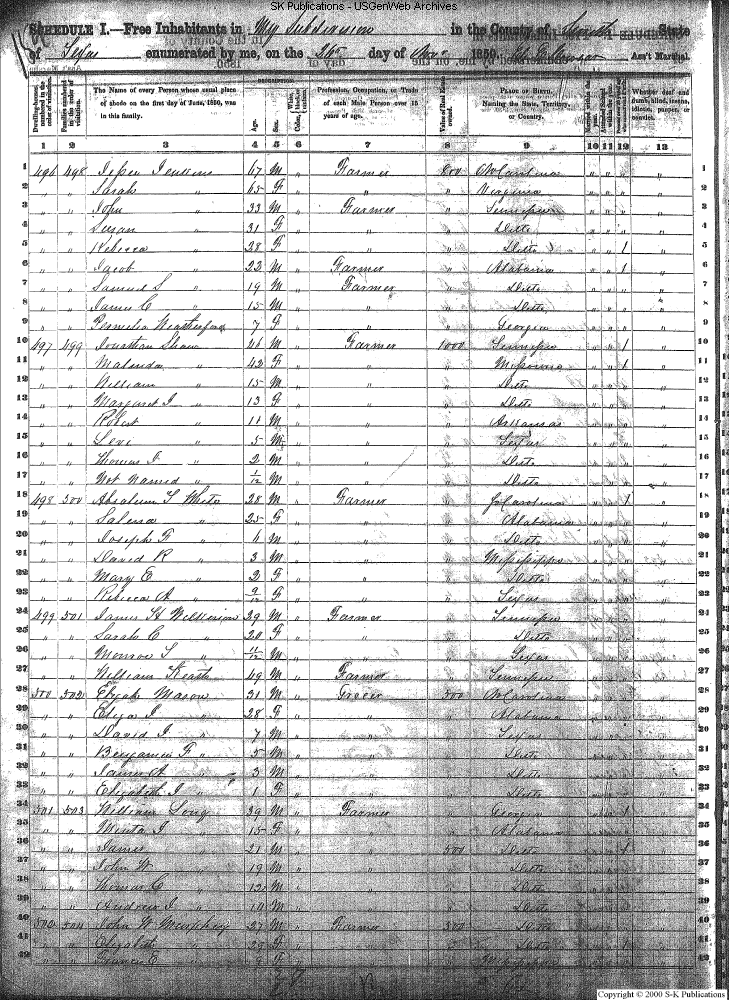 SK Publications - USGenWeb Archives
SCHEDULE I.—Free Inhabitants in My Subdivision in the County of State
of Texas enumerated by me, on the day of 1850. Ass't Marshal.
Dwelling-houses numbered in the order of visitation.
Families numbered in the order of visitation.
The Name of every Person whose usual place of abode on the first day of June, 1850, was in this family.
DESCRIPTION.
Age.
Sex.
White, black, or mulatto.
Profession, Occupation, or Trade of each Male Person over 15 years of age.
Value of Real Estate owned.
PLACE OF BIRTH, Naming the State, Territory, or Country.
Married within the year.
Whether deaf and dumb, blind, insane, idiotic, pauper, or convict.
1 2 3 4 5 6 7 8 9 10 11 12 13
1 496 498 Jenkins 67 M Farmer 800 N Carolina " " " 1
2 " " Sarah " 65 F " " Virginia " " " 2
3 " " John " 33 M Farmer " Tennessee " " " 3
4 " " Susan " 31 F " " Ditto " " " 4
5 " " Rebecca " 28 F " " Ditto " " 1 5
6 " " Jacob " 22 M Farmer " Alabama " " 1 6
7 " " Samuel S " 19 M Farmer " Ditto " " " 7
8 " " James C " 15 M " " Ditto " " " 8
9 " " Permelia Weatherford 7 F " " Georgia " " " 9
10 497 499 Jonathan Shaw 46 M Farmer 1000 Tennessee " " 1 10
11 " " Malinda " 42 F " " Missouri " " 1 11
12 " " William " 15 M " " Ditto " " " 12
13 " " Margaret J " 13 F " " Ditto " " " 13
14 " " Robert " 11 M " " Arkansas " " " 14
15 " " Levi " 5 M " " Texas " " " 15
16 " " Thomas F " 2 M " " Ditto " " " 16
17 " " Not Named " 1/12 M " " Ditto " " " 17
18 498 500 Absalum S White 28 M Farmer " S Carolina " " 1 18
19 " " Salena " 25 F " " Alabama " " " 19
20 " " Joseph F " 6 M " " Ditto " " " 20
21 " " David R " 3 M " " Mississippi " " " 21
22 " " Mary E " 2 F " " Ditto " " " 22
23 " " Rebecca A " 9/12 F " " Texas " " " 23
24 499 501 James H Wilkerson 29 M Farmer " Tennessee " " " 24
25 " " Sarah C " 20 F " " Ditto " " " 25
26 " " Monroe S " 11/12 M " " Texas " " " 26
27 " " William 49 M Farmer " Tennessee " " " 27
28 500 502 Elijah Mason 31 M Grocer 500 N Carolina " " " 28
29 " " Eliza J " 28 F " " Alabama " " " 29
30 " " David J " 7 M " " Texas " " " 30
31 " " Benjamin F " 5 M " " Ditto " " " 31
32 " " James A " 3 M " " Ditto " " " 32
33 " " Elizabeth J " 1 F " " Ditto " " " 33
34 501 503 William Long 39 M Farmer " Georgia " " 1 34
35 " " J " 15 F " " Alabama " " " 35
36 " " James " 21 M " 500 Ditto " " 1 36
37 " " John W " 19 M " " Ditto " " " 37
38 " " Thomas C " 12 M " " Ditto " " " 38
39 " " Andrew J " 10 M " " Ditto " " " 39
40 502 504 John W 27 M Farmer 800 Ditto " " " 40
41 " " Elizabeth " 25 F " " Ditto " " 1 41
42 " " Francis E F " " Mississippi " " " 42
Copyright © 2000 S-K Publications